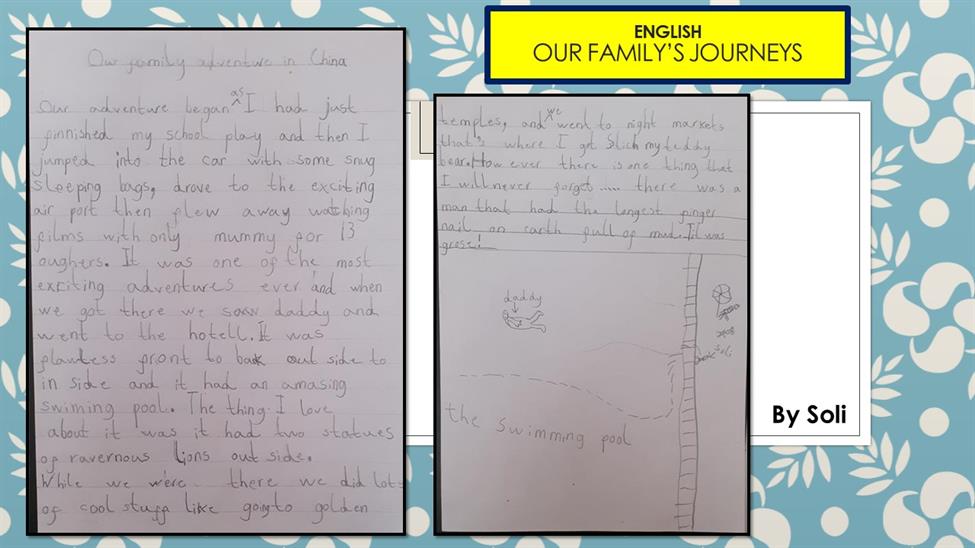 ENGLISH
OUR FAMILY'S JOURNEYS
Our family adventure in China
Our adventure began as I had just
finnished my school play and then I
jumped into the car with some snug
sleeping bags, drove to the exciting
air port then flew away watching
films with only mummy for 13
oughers. It was one of the most
exciting adventures ever and when
we got there we saw daddy and
went to the hotell. It was
flawless front to back out side to
in side and it had an amasing
swiming pool. The thing I love
about it was it had two statues
of ravernous lions out side.
While we were there we did lots
of cool stuff like going to golden
temples, and we went to night markets
that's where I got Slich my teddy
bear. How ever there is one thing that
I will never forget ..... there was a
man that had the longest finger
nail on earth full of mud. It was
gross!
daddy
the swimming pool
By Soli